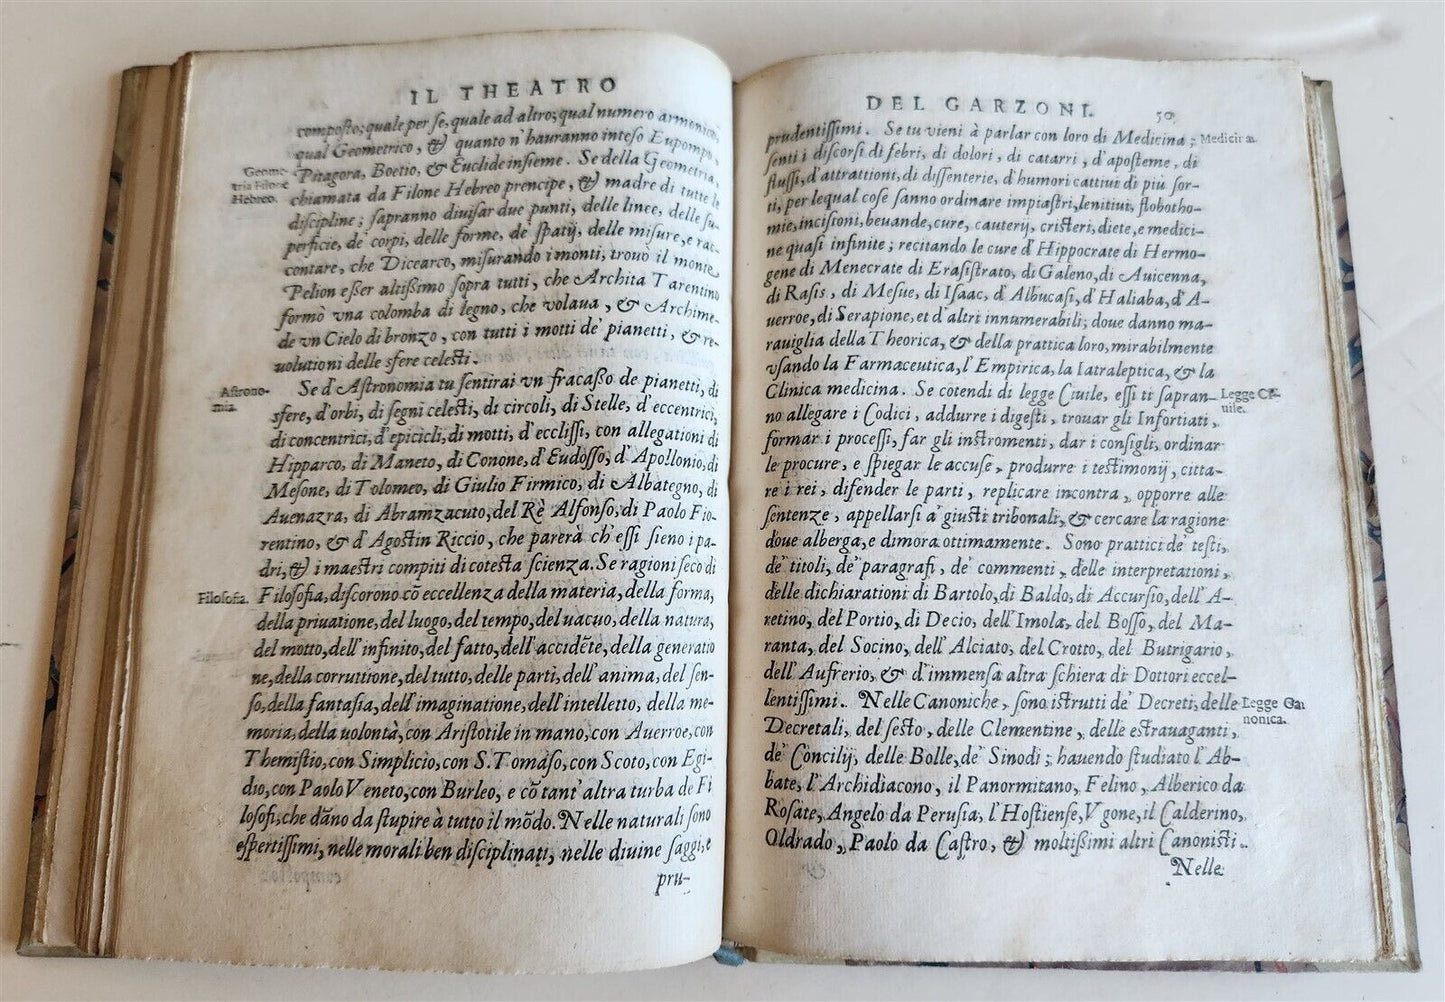 IL THEATRO
composto; quale per se, quale ad altro; qual numero armonico,
qual Geometrico, & quanto n'hauranno inteso Eupompo,
Geome-
tria Filone
Hebreo.
Pitagora, Boetio, & Euclide insieme. Se della Geometria,
chiamata da Filone Hebreo prencipe, & madre di tutte le
discipline; sapranno diuisar due punti, delle linee, delle su-
perficie, de' corpi, delle forme, de' spatij, delle misure, e rac-
contare, che Dicearco, misurando i monti, trouò il monte
Pelion esser altissimo sopra tutti, che Archita Tarentino
formò vna colomba di legno, che volaua, & Archime-
de vn Cielo di bronzo, con tutti i motti de' pianetti, & re-
uolutioni delle sfere celesti.
Astrono-
mia.
Se d'Astronomia tu sentirai vn fracasso de pianetti, di
sfere, d'orbi, di segni celesti, di circoli, di Stelle, d'eccentrici,
di concentrici, d'epicicli, di motti, d'ecclissi, con allegationi di
Hipparco, di Maneto, di Conone, d'Eudosso, d'Apollonio, di
Mesone, di Tolomeo, di Giulio Firmico, di Albategno, di
Auenazra, di Abramzacuto, del Rè Alfonso, di Paolo Fio-
rentino, & d'Agostin Riccio, che parerà ch'essi sieno i pa-
dri, & i maestri compiti di cotesta scienza. Se ragioni seco di
Filosofia.
Filosofia, discorono cō eccellenza della materia, della forma,
della priuatione, del luogo, del tempo, del uacuo, della natura,
del motto, dell'infinito, del fatto, dell'accidēte, della generatio
ne, della corruttione, del tutto, delle parti, dell'anima, del sen-
so, della fantasia, dell'imaginatione, dell'intelletto, della me-
moria, della uolontà, con Aristotile in mano, con Auerroe, con
Themistio, con Simplicio, con S. Tomaso, con Scoto, con Egi-
dio, con Paolo Veneto, con Burleo, e cō tant'altra turba de Fi
losofi, che dāno da stupire à tutto il mōdo. Nelle naturali sono
espertissimi, nelle morali ben disciplinati, nelle diuine saggi, e
pru-
DEL GARZONI. 50
prudentissimi. Se tu vieni à parlar con loro di Medicina;
Medicina.
senti i discorsi di febri, di dolori, di catarri, d'aposteme, di
flussi, d'attrattioni, di dissenterie, d'humori cattiui di più sor-
ti, per lequal cose sanno ordinare impiastri, lenitiui, flobotho-
mie, incisioni, beuande, cure, cauterij, cristeri, diete, e medici-
ne quasi infinite; recitando le cure d'Hippocrate di Hermo-
gene di Menecrate di Erasistrato, di Galeno, di Auicenna,
di Rasis, di Mesue, di Isaac, d'Albucasi, d'Haliaba, d'A-
uerroe, di Serapione, et d'altri innumerabili; doue danno ma-
rauiglia della Theorica, & della prattica loro, mirabilmente
vsando la Farmaceutica, l'Empirica, la Iatraleptica, & la
Clinica medicina. Se cotendi di legge Ciuile, essi ti sapran-
Legge Ci-
uile.
no allegare i Codici, addurre i digesti, trouar gli Infortiati,
formar i processi, far gli instromenti, dar i consigli, ordinar
le procure, e spiegar le accuse, produrre i testimonij, citta-
re i rei, difender le parti, replicare incontra, opporre alle
sentenze, appellarsi a' giusti tribonali, & cercare la ragione
doue alberga, e dimora ottimamente. Sono prattici de' testi,
de' titoli, de' paragrafi, de' commenti, delle interpretationi,
delle dichiarationi di Bartolo, di Baldo, di Accursio, dell'A-
retino, del Portio, di Decio, dell'Imola, del Bosso, del Ma-
ranta, del Socino, dell'Alciato, del Crotto, del Butrigario,
dell'Aufrerio, & d'immensa altra schiera di Dottori eccel-
lentissimi. Nelle Canoniche, sono istrutti de' Decreti, delle
Legge Ca
nonica.
Decretali, del sesto, delle Clementine, delle estrauaganti,
de' Concilij, delle Bolle, de' Sinodi; hauendo studiato l'Ab-
bate, l'Archidiacono, il Panormitano, Felino, Alberico da
Rosate, Angelo da Perusia, l'Hostiense, Vgone, il Calderino,
Oldrado, Paolo da Castro, & moltissimi altri Canonisti.
Nelle